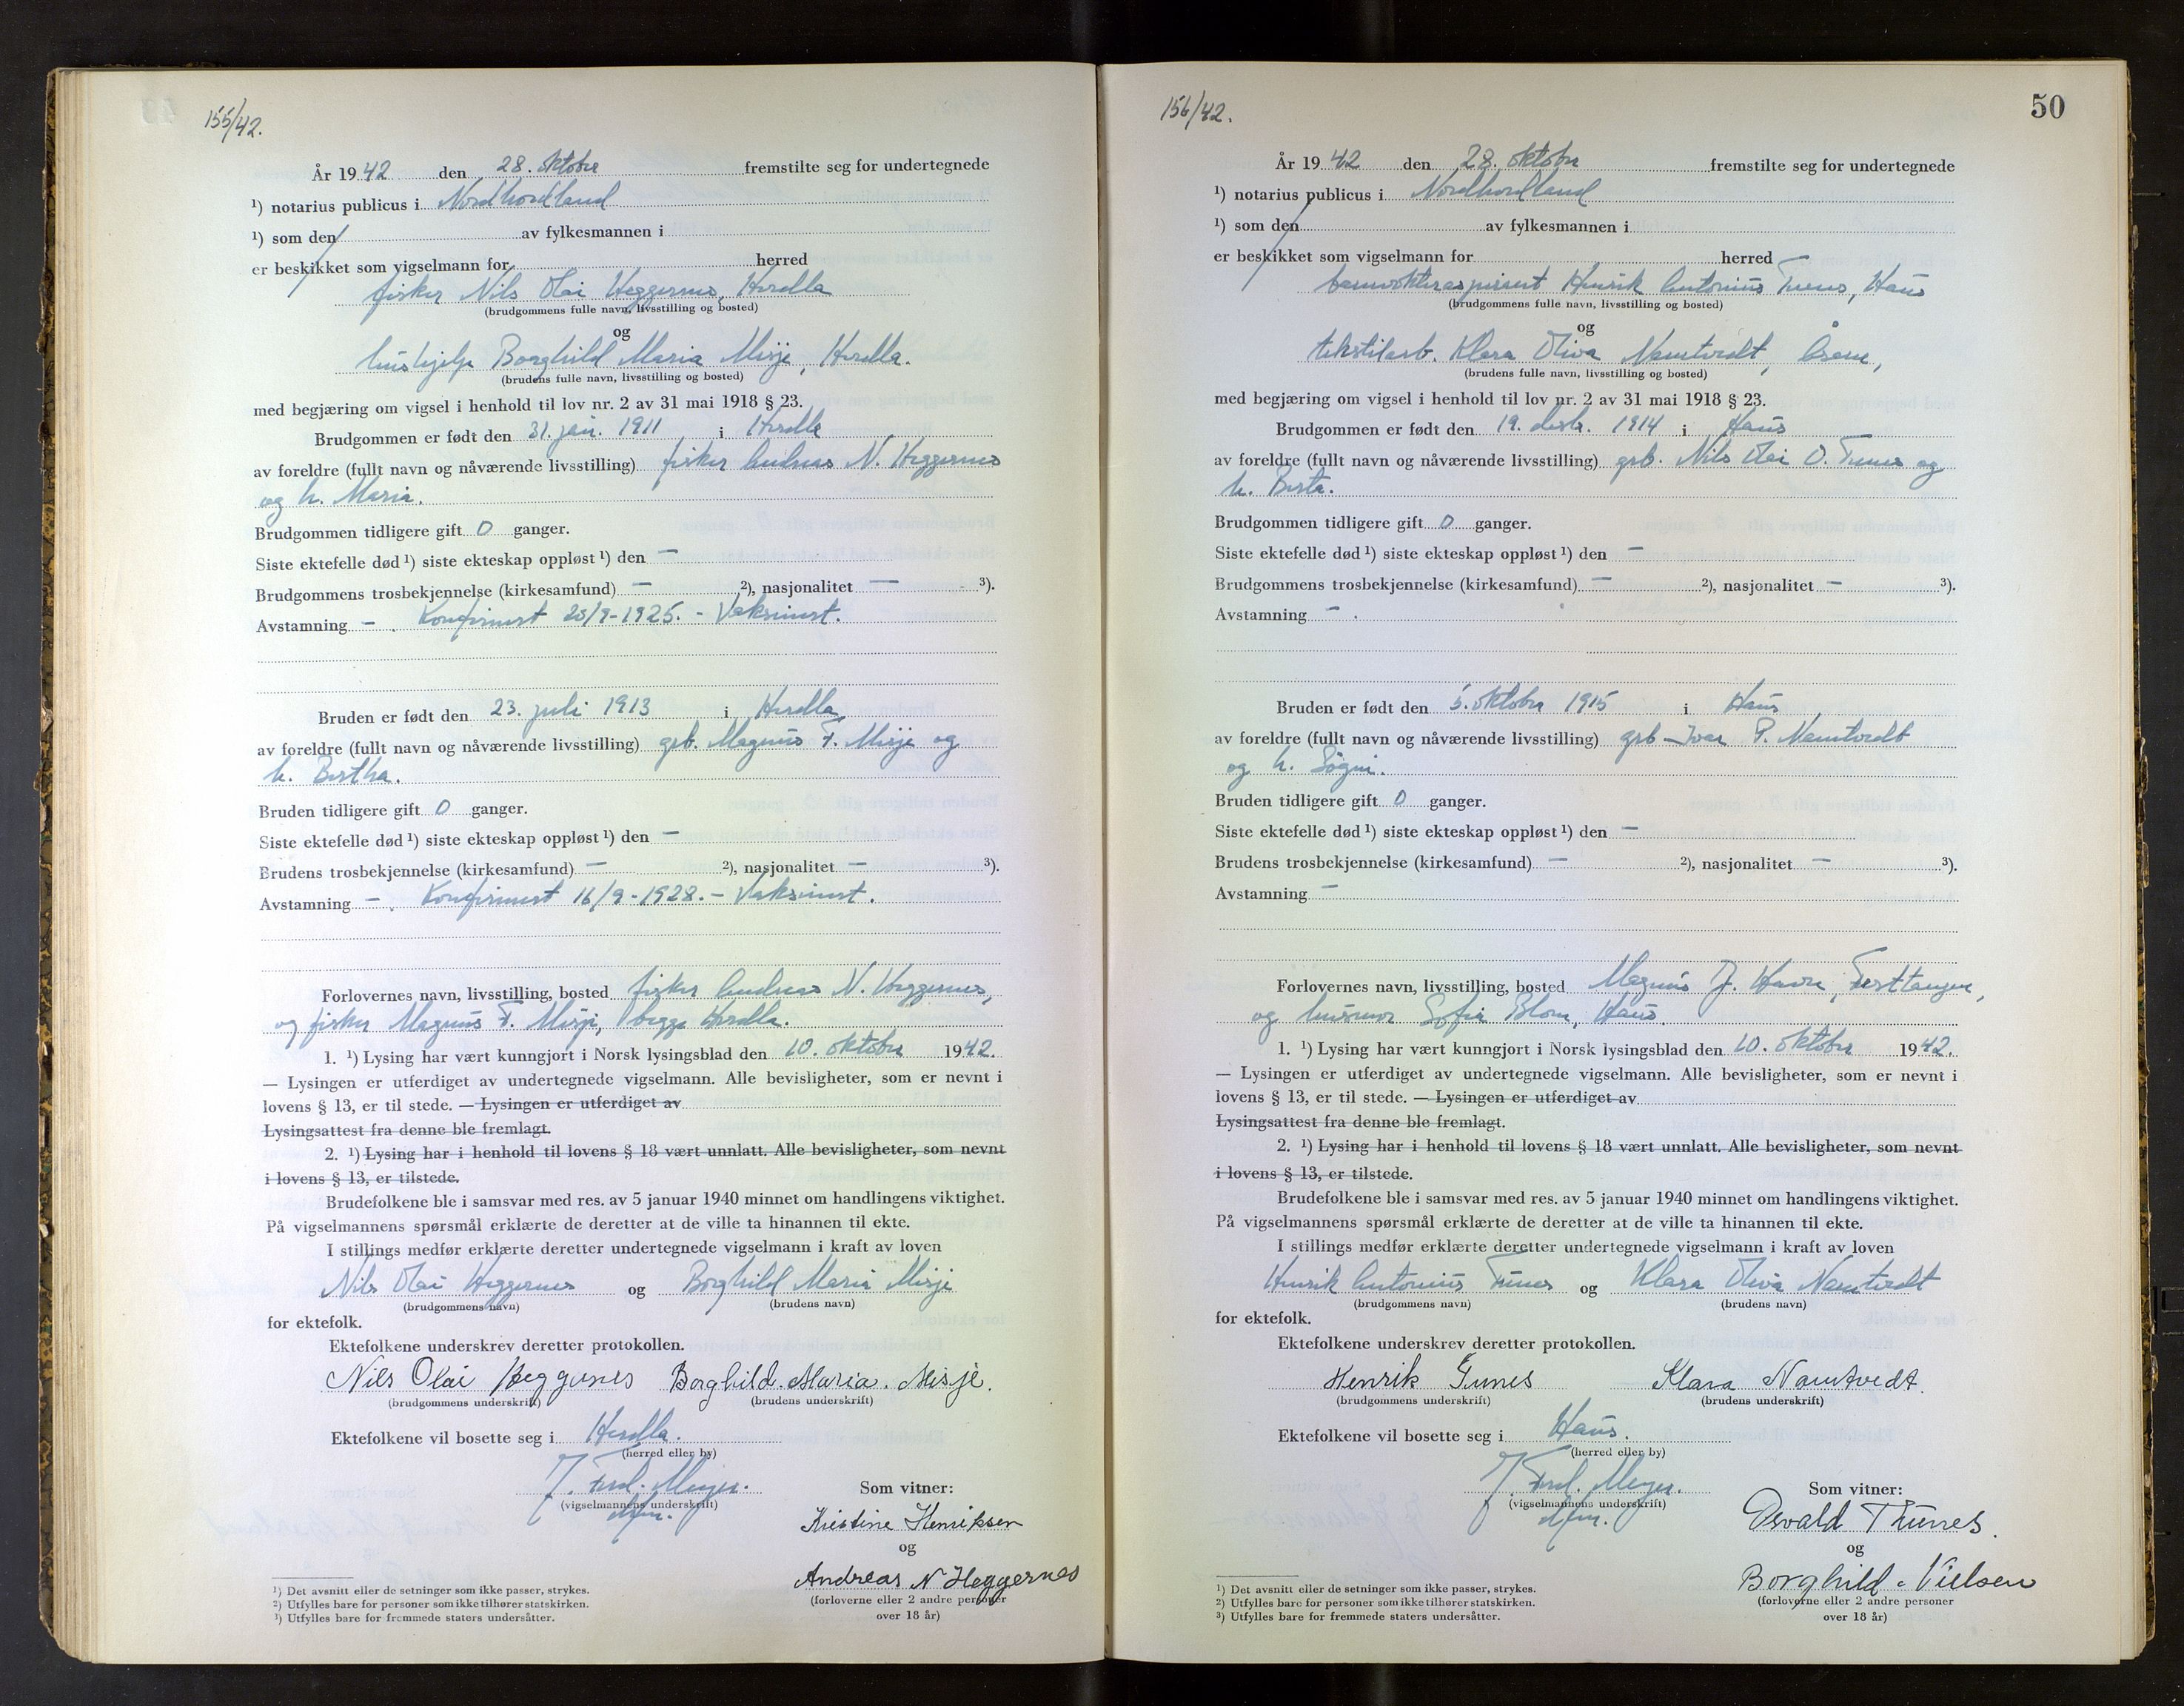 155/42.
År 1942 den 28. oktober fremstilte seg for undertegnede
¹) notarius publicus i Nordhordland
¹) som den av fylkesmannen i
er beskikket som vigselmann for herred
fisker Nils Olai Heggernes, Herdla
(brudgommens fulle navn, livsstilling og bosted)
og
hushjelp Borghild Maria Misje, Herdla.
(brudens fulle navn, livsstilling og bosted)
med begjæring om vigsel i henhold til lov nr. 2 av 31 mai 1918 § 23.
Brudgommen er født den 31. jan. 1911 i Herdla
av foreldre (fullt navn og nåværende livsstilling) fisker Andreas N. Heggernes
og h. Maria.
Brudgommen tidligere gift 0 ganger.
Siste ektefelle død ¹) siste ekteskap oppløst ¹) den —
Brudgommens trosbekjennelse (kirkesamfund) — ²), nasjonalitet — ³).
Avstamning — . Konfirmert 20/9-1925. - Vaksinert.
Bruden er født den 23. juli 1913 i Herdla
av foreldre (fullt navn og nåværende livsstilling) grb. Magnus F. Misje og
h. Bertha.
Bruden tidligere gift 0 ganger.
Siste ektefelle død ¹) siste ekteskap oppløst ¹) den —
Brudens trosbekjennelse (kirkesamfund) — ²), nasjonalitet — ³).
Avstamning — . Konfirmert 16/9-1928. - Vaksinert.
Forlovernes navn, livsstilling, bosted fisker Andreas N. Heggernes,
og fisker Magnus F. Misje, begge Herdla.
1. ¹) Lysing har vært kunngjort i Norsk lysingsblad den 10. oktober 1942.
— Lysingen er utferdiget av undertegnede vigselmann. Alle bevisligheter, som er nevnt i
lovens § 13, er til stede. — Lysingen er utferdiget av
Lysingsattest fra denne ble fremlagt.
2. ¹) Lysing har i henhold til lovens § 18 vært unnlatt. Alle bevisligheter, som nevnt
i lovens § 13, er tilstede.
Brudefolkene ble i samsvar med res. av 5 januar 1940 minnet om handlingens viktighet.
På vigselmannens spørsmål erklærte de deretter at de ville ta hinannen til ekte.
I stillings medfør erklærte deretter undertegnede vigselmann i kraft av loven
Nils Olai Heggernes og Borghild Maria Misje
(brudgommens navn) (brudens navn)
for ektefolk.
Ektefolkene underskrev deretter protokollen.
Nils Olai Heggernes Borghild. Maria. Misje.
(brudgommens underskrift) (brudens underskrift)
Ektefolkene vil bosette seg i Herdla.
(herred eller by)
J. Fred. Meyer.
(vigselmannens underskrift)
Som vitner:
Kristine Henriksen
og
Andreas N Heggernes
(forloverne eller 2 andre personer
over 18 år)
¹) Det avsnitt eller de setninger som ikke passer, strykes.
²) Utfylles bare for personer som ikke tilhører statskirken.
³) Utfylles bare for fremmede staters undersåtter.
156/42.
50
År 1942 den 28. oktober fremstilte seg for undertegnede
¹) notarius publicus i Nordhordland
¹) som den av fylkesmannen i
er beskikket som vigselmann for herred
Henrik Antonius Tunes, Haus
(brudgommens fulle navn, livsstilling og bosted)
og
tekstilarb. Klara Oliva Namtvedt, Åsane,
(brudens fulle navn, livsstilling og bosted)
med begjæring om vigsel i henhold til lov nr. 2 av 31 mai 1918 § 23.
Brudgommen er født den 19. desbr. 1914 i Haus
av foreldre (fullt navn og nåværende livsstilling) grb. Nils Olai O. Tunes og
h. Berta.
Brudgommen tidligere gift 0 ganger.
Siste ektefelle død ¹) siste ekteskap oppløst ¹) den —
Brudgommens trosbekjennelse (kirkesamfund) — ²), nasjonalitet — ³).
Avstamning — .
Bruden er født den 5. oktober 1915 i Haus
av foreldre (fullt navn og nåværende livsstilling) grb Ivar P. Namtvedt
og h. Søgni.
Bruden tidligere gift 0 ganger.
Siste ektefelle død ¹) siste ekteskap oppløst ¹) den —
Brudens trosbekjennelse (kirkesamfund) — ²), nasjonalitet — ³).
Avstamning —
Forlovernes navn, livsstilling, bosted Magnus J. Havre,
og husmor Sofia Blom, Haus.
1. ¹) Lysing har vært kunngjort i Norsk lysingsblad den 10. oktober 1942.
— Lysingen er utferdiget av undertegnede vigselmann. Alle bevisligheter, som er nevnt i
lovens § 13, er til stede. — Lysingen er utferdiget av
Lysingsattest fra denne ble fremlagt.
2. ¹) Lysing har i henhold til lovens § 18 vært unnlatt. Alle bevisligheter, som nevnt
i lovens § 13, er tilstede.
Brudefolkene ble i samsvar med res. av 5 januar 1940 minnet om handlingens viktighet.
På vigselmannens spørsmål erklærte de deretter at de ville ta hinannen til ekte.
I stillings medfør erklærte deretter undertegnede vigselmann i kraft av loven
Henrik Antonius Tunes og Klara Oliva Namtvedt
(brudgommens navn) (brudens navn)
for ektefolk.
Ektefolkene underskrev deretter protokollen.
Henrik Tunes Klara Namtvedt.
(brudgommens underskrift) (brudens underskrift)
Ektefolkene vil bosette seg i Haus.
(herred eller by)
J. Fred. Meyer.
(vigselmannens underskrift)
Som vitner:
Osvald Thunes.
og
Borghild Nielsen
(forloverne eller 2 andre personer
over 18 år)
¹) Det avsnitt eller de setninger som ikke passer, strykes.
²) Utfylles bare for personer som ikke tilhører statskirken.
³) Utfylles bare for fremmede staters undersåtter.